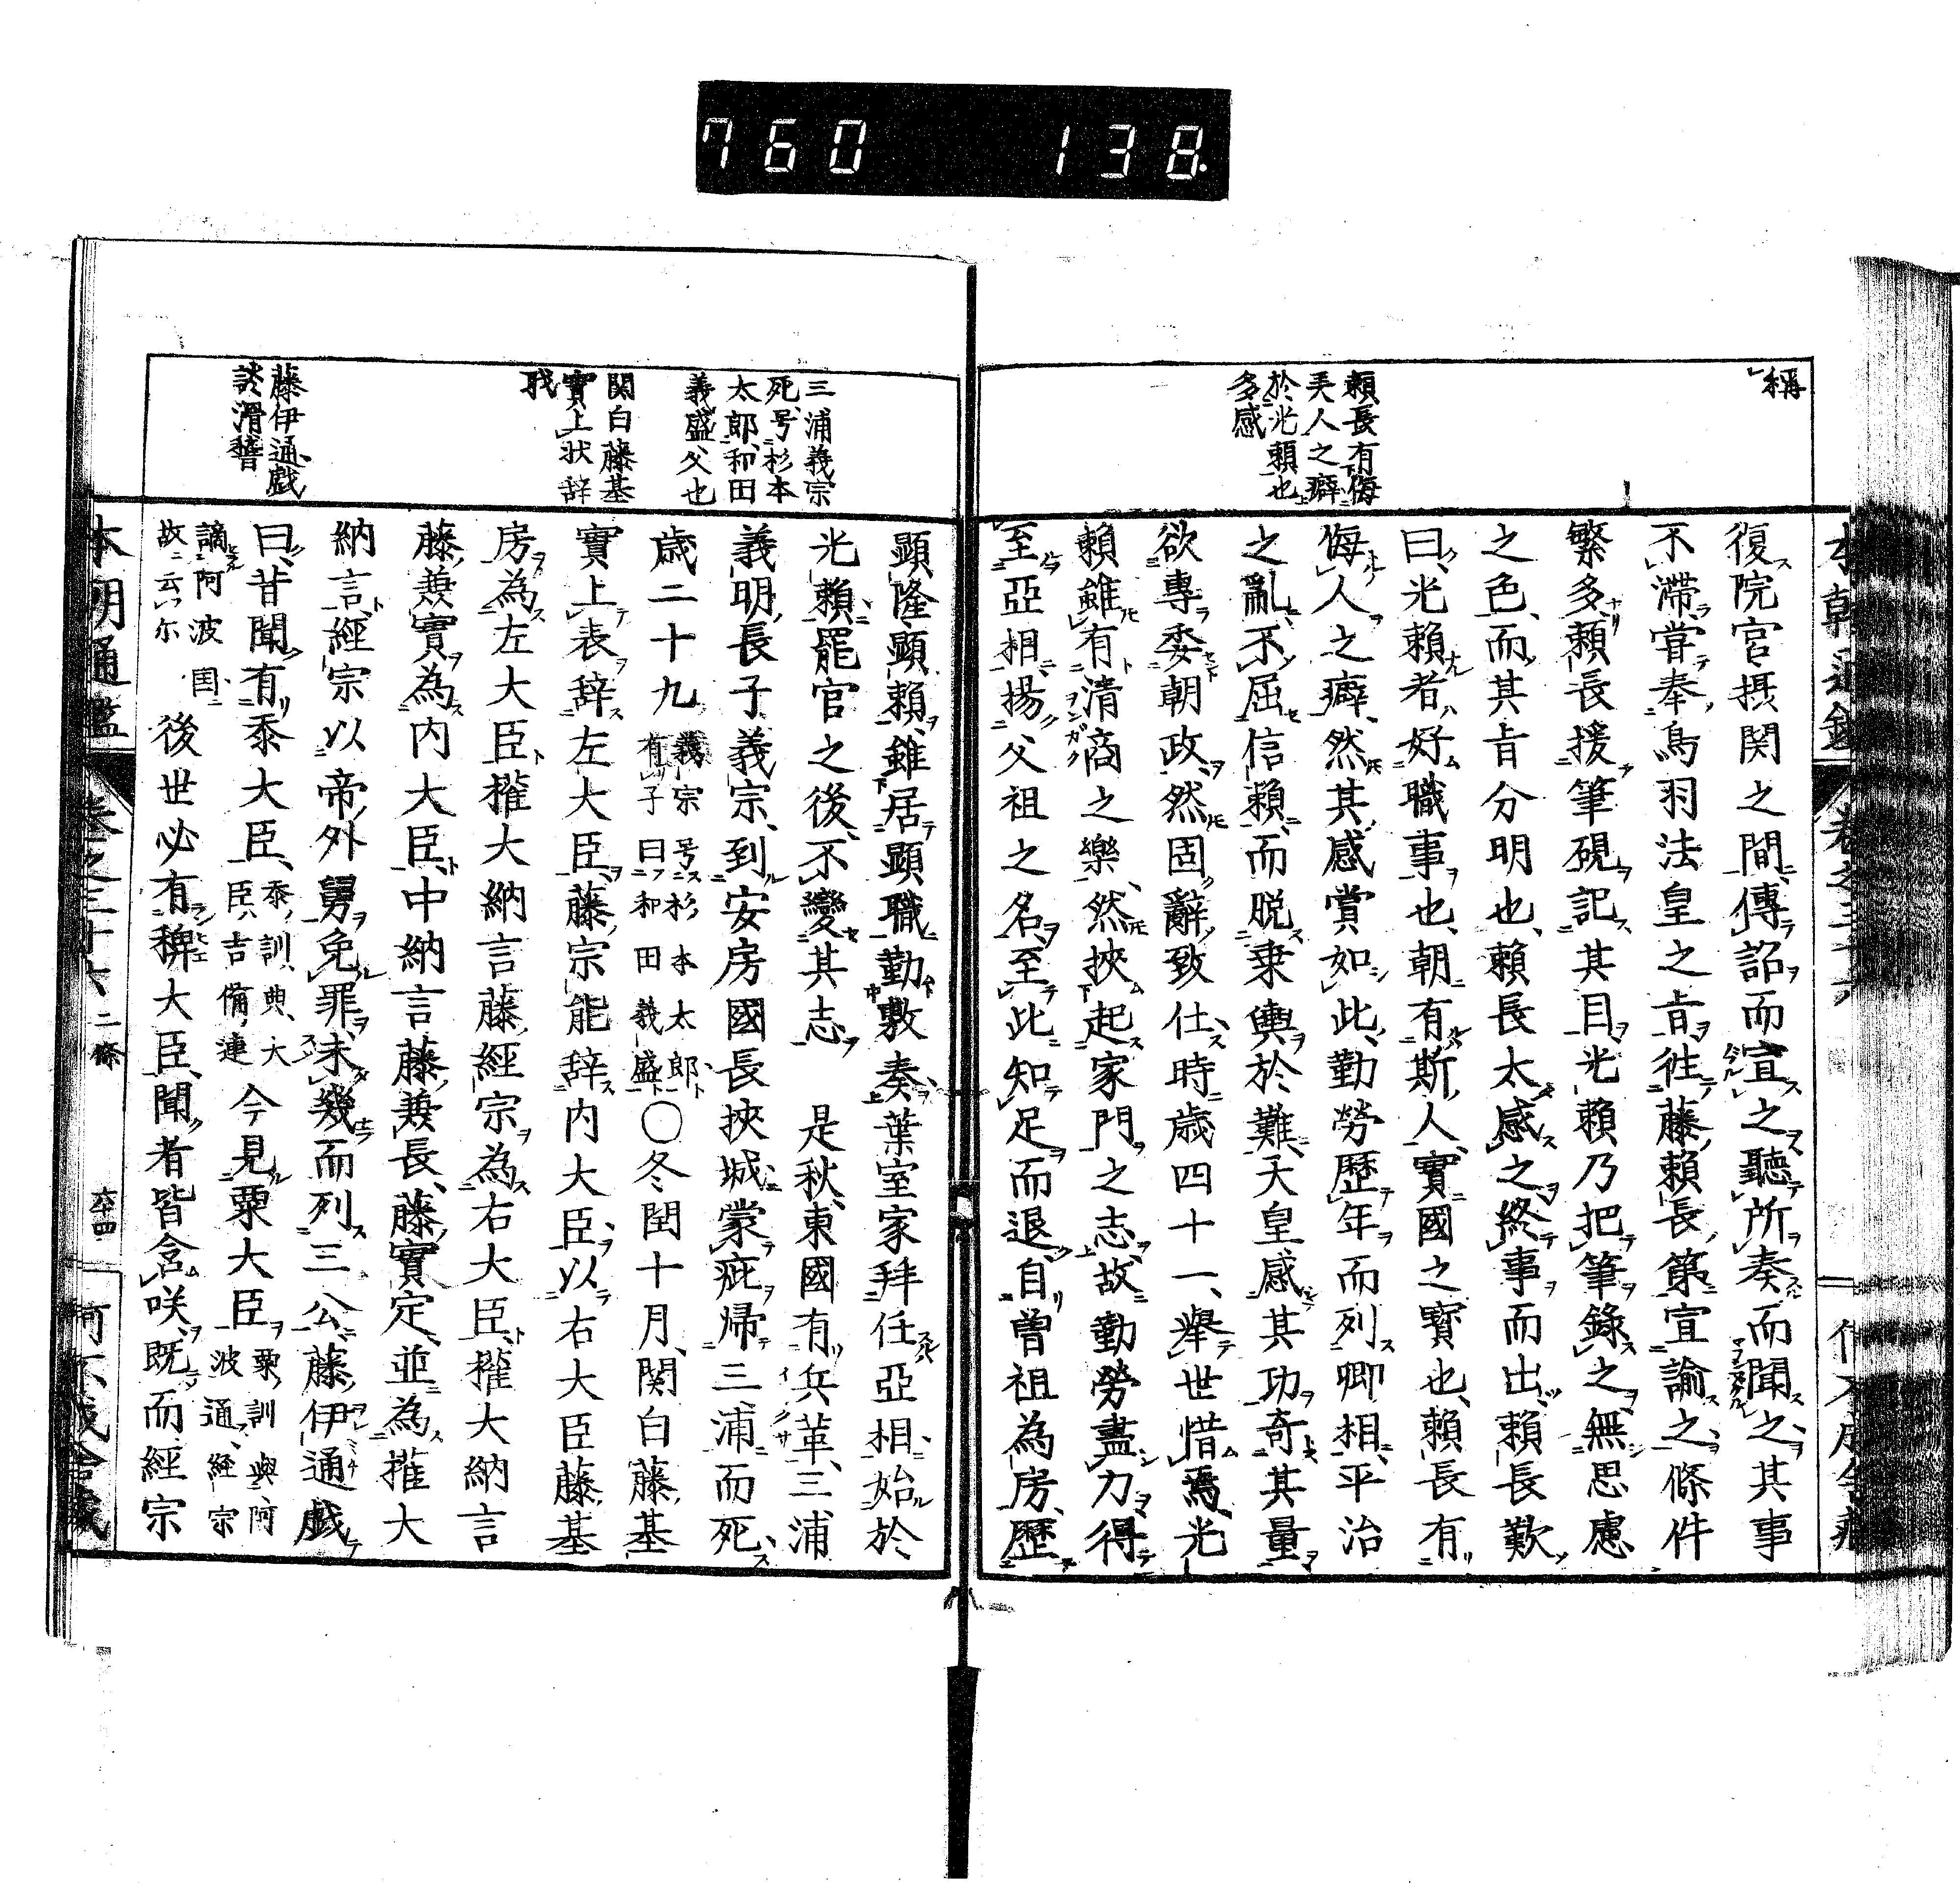 760 138
稱
頼長有侮
美人之癖
於光頼也
多感
復院宮摂関之間傳詔而宣之聽所奏而聞之其事
不滞甞奉鳥羽法皇之旨徃藤頼長第宣諭之條件
繁多頼長援筆硯記其目光頼乃把筆錄之無思慮
之色而其旨分明也頼長太感之終事而出頼長歎
曰光頼者好職事也朝有斯人實國之寶也頼長有
侮人之癖然其感賞如此勤勞歷年而列卿相平治
之亂不屈信頼而脱乗輿於難天皇感其功奇其量
欲專委朝政然固辭致仕時歳四十一舉世惜焉光
頼雖有清商之樂然挾起家門之志故勤勞盡力得
至亞相揚父祖之名至此知足而退自曽祖為房歷
三浦義宗
死号杉本
太郎和田
義盛父也
関白藤基
實上状辞
職
藤伊通戯
談滑稽
顕隆顕頼雖居顕職勤敷奏葉室家拜任亞相始於
光頼罷官之後不變其志 是秋東國有兵革三浦
義明長子義宗到安房國長挾城蒙疵帰三浦而死
歳二十九義宗号杉本太郎有子曰和田義盛〇冬閏十月関白藤基
實上表辞左大臣藤宗能辞内大臣以右大臣藤基
房為左大臣權大納言藤經宗為右大臣權大納言
藤兼實為内大臣中納言藤兼長藤實定並為權大
納言經宗以帝外舅免罪未幾而列三公藤伊通戯
曰昔聞有黍大臣黍訓典大臣吉備連今見粟大臣粟訓與阿波通經宗
謫阿波国故云尓後世必有稗大臣聞者皆含咲既而經宗
本朝通鑑 卷之三十六 二條 六十四